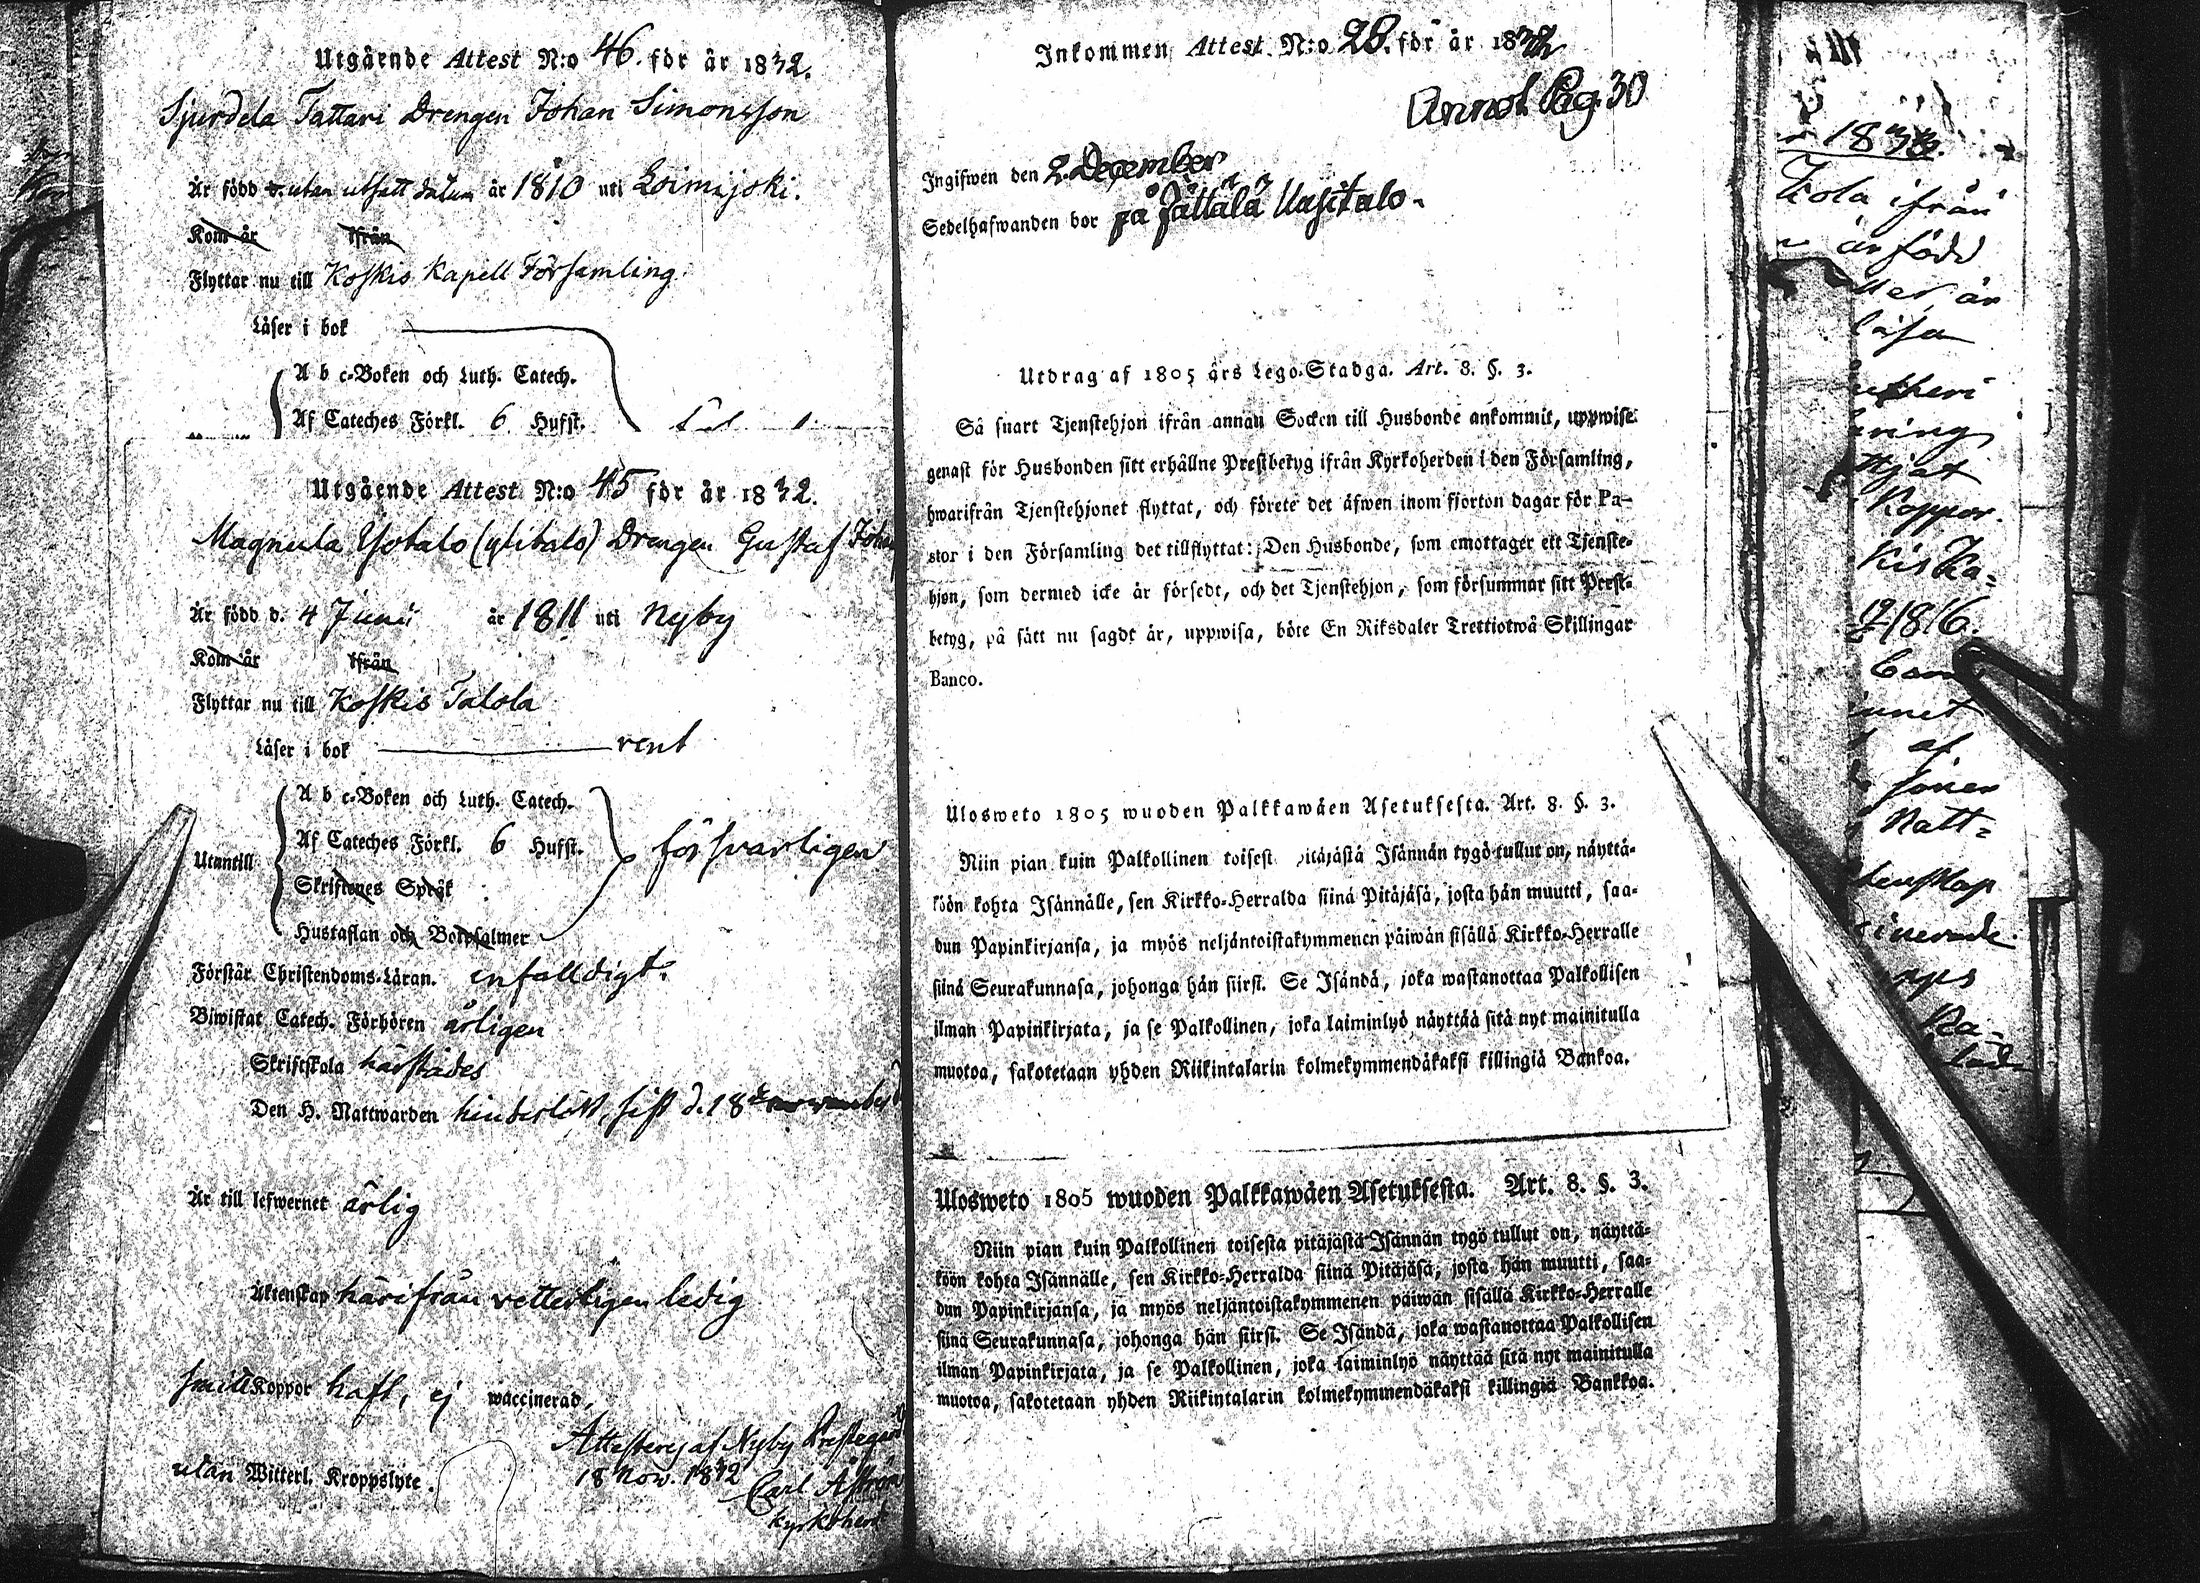 Utgående Attest N:o 46. för år 1832.
Sjurdela Tattari Drengen Johan Simonsson
Är född d. utan utsatt datum år 1810 uti Loimijoki.
Kom år ifrån
Flyttar nu till Koskis Kapell Församling.
Läser i bok
A b c-Boken och Luth. Catech.
Af Cateches Förkl. 6 Hufst.
Utgående Attest N:o 45 för år 1832.
Magnula Ylotalo (ylitalo) Drengen Gustaf Johan
Är född d. 4 Junii år 1811 uti Nyby
Kom år ifrån
Flyttar nu till Koskis Talola
Läser i bok rent
A b c-Boken och Luth. Catech.
Utantill Af Cateches Förkl. 6 Hufst. försvarligen
Skriftenes Språk
Hustaflan och Botpsalmer
Förstår Christendoms-Läran. enfaldigt.
Biwistat Catech. Förhören årligen
Skriftskola härstädes
Den H. Nattwarden sist d. 18 november
Är till lefwernet ärlig
Äktenskap härifrån vetterligen ledig
Smittkoppor haft, ej waccinerad,
utan Witterl. Kroppslyte.
Attesteras af Nyby Prestegård
18 Nov. 1832
Carl Åström
Kyrkoherd
Inkommen Attest. N:o 28. för år 1832
Annot. Pag. 30
Ingifwen den 2. December
Sedelhafwanden bor på Jättälä Uusitalo.
Utdrag af 1805 års Lego-Stadga. Art. 8. §. 3.
Så snart Tjenstehjon ifrån annan Socken till Husbonde ankommit, uppwise
genast för Husbonden sitt erhållne Prestbetyg ifrån Kyrkoherden i den Församling,
hwarifrån Tjenstehjonet flyttat, och förete det äfwen inom fjorton dagar för Pa-
stor i den Församling det tillflyttat: Den Husbonde, som emottager ett Tjenste-
hjon, som dermed icke är försedt, och det Tjenstehjon, som försummar sitt Prest-
betyg, på sätt nu sagdt är, uppwisa, böte En Riksdaler Trettiotwå Skillingar
Banco.
Ulosweto 1805 wuoden Palkkawäen Asetuksesta. Art. 8. §. 3.
Niin pian kuin Palkollinen toisest pitäjästä Isännän tygö tullut on, näyttä-
köön kohta Isännälle, sen Kirkko-Herralda siinä Pitäjäsä, josta hän muutti, saa-
dun Papinkirjansa, ja myös neljäntoistakymmenen päiwän sisällä Kirkko-Herralle
siinä Seurakunnasa, johonga hän siirsi. Se Isändä, joka wastanottaa Palkollisen
ilman Papinkirjata, ja se Palkollinen, joka laiminlyö näyttää sitä nyt mainitulla
muotoa, sakotetaan yhden Riikintalarin kolmekymmendäkaksi killingiä Bankoa.
Ulosweto 1805 wuoden Palkkawäen Asetuksesta. Art. 8. §. 3.
Niin pian kuin Palkollinen toisesta pitäjästä Isännän tygö tullut on, näyttä-
köön kohta Isännälle, sen Kirkko-Herralda siinä Pitäjäsä, josta hän muutti, saa-
dun Papinkirjansa, ja myös neljäntoistakymmenen päiwän sisällä Kirkko-Herralle
siinä Seurakunnasa, johonga hän siirsi. Se Isändä, joka wastanottaa Palkollisen
ilman Papinkirjata, ja se Palkollinen, joka laiminlyö näyttää sitä nyt mainitulla
muotoa, sakotetaan yhden Riikintalarin kolmekymmendäkaksi killingiä Bankkoa.
ifrån
är född
år
läsa
Koppor.
1816.
af
Natt-